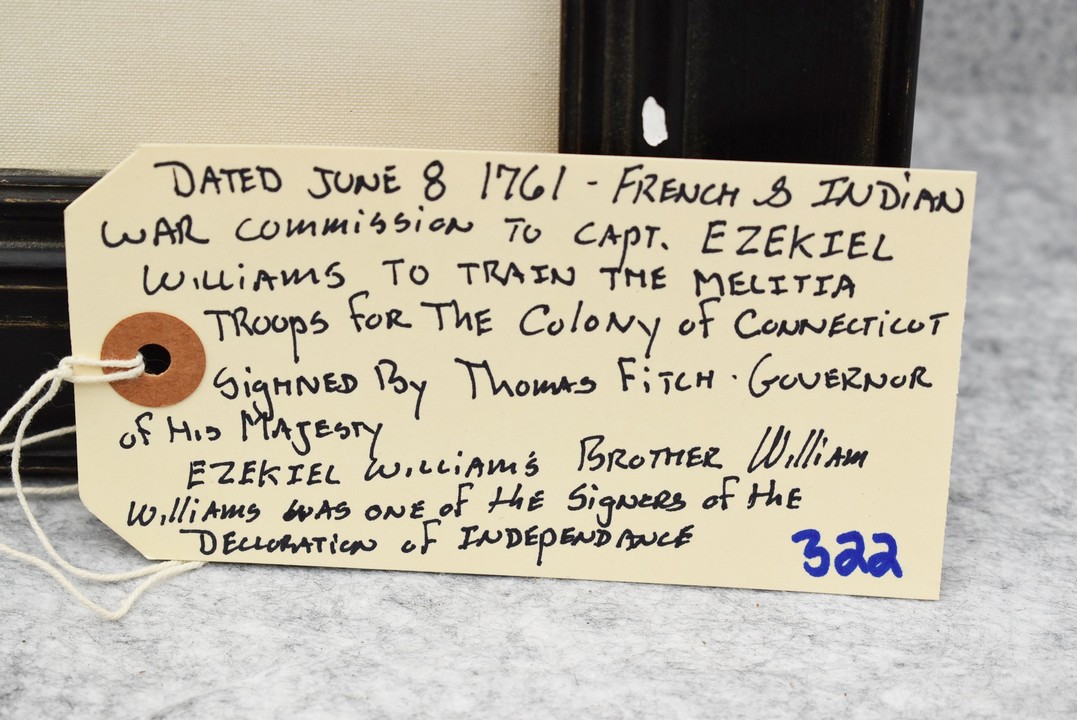 DATED JUNE 8 1761 - FRENCH & INDIAN
WAR COMMISSION TO CAPT. EZEKIEL
WILLIAMS TO TRAIN THE MELITIA
TROOPS FOR THE COLONY of CONNECTICOT
SIGHNED By THOMAS FITCH · GOVERNOR
of HIS MAJESTY
EZEKIEL WILLIAMS BROTHER William
Williams WAS ONE of the SIGNERS of the
DECLORATION of INDEPENDANCE
322